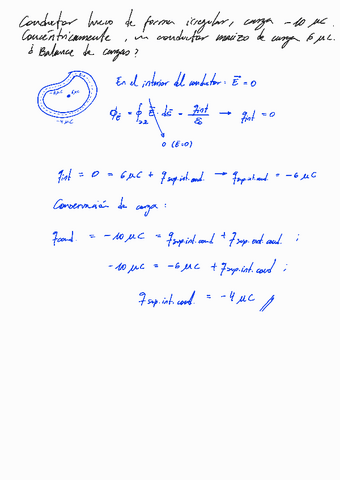 Conductor hueco de forma irregular, carga -10 μC.
Concéntricamente, un conductor macizo de carga 6 μC.
¿ Balance de cargas?
En el interior del conductor: E⃗ = 0
-6μC 6μC
-4μC
ϕ_E⃗ = ∮_∂Σ E⃗ · dΣ⃗ = q_int/ε₀ → q_int = 0
0 (E⃗=0)
q_int = 0 = 6 μC + q_sup.int.cond → q_sup.int.cond = -6 μC
Conservación de carga :
q_cond. = -10 μC = q_sup.int.cond + q_sup.ext.cond ;
-10 μC = -6 μC + q_sup.int.cond ;
q_sup.int.cond. = -4 μC //